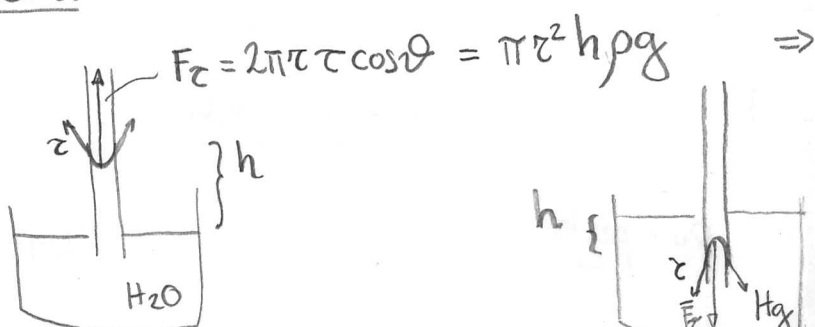 F_τ = 2πr τ cosϑ = πr² hρg ⇒
τ
} h
h {
H₂O
τ
F_τ
Hg